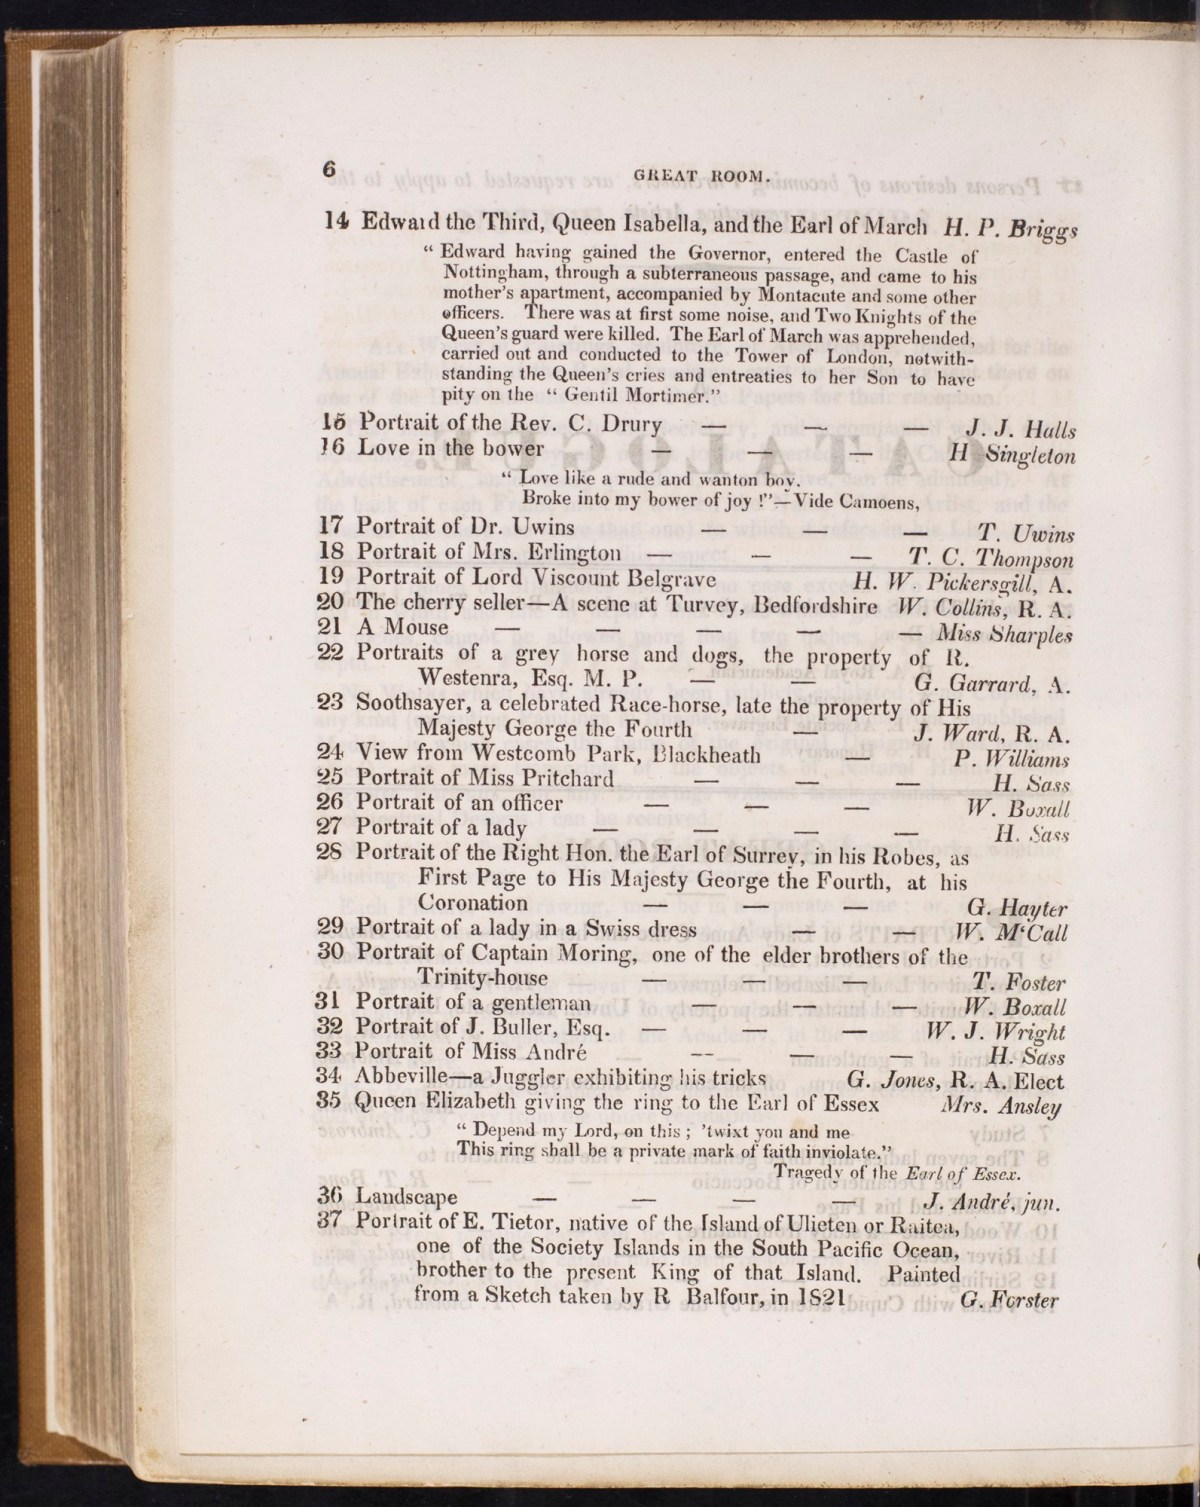 6 GREAT ROOM.
14 Edward the Third, Queen Isabella, and the Earl of March H. P. Briggs
“ Edward having gained the Governor, entered the Castle of
Nottingham, through a subterraneous passage, and came to his
mother's apartment, accompanied by Montacute and some other
officers. There was at first some noise, and Two Knights of the
Queen's guard were killed. The Earl of March was apprehended,
carried out and conducted to the Tower of London, notwith-
standing the Queen's cries and entreaties to her Son to have
pity on the “ Gentil Mortimer.”
15 Portrait of the Rev. C. Drury — — — J. J. Halls
16 Love in the bower — — — H Singleton
“ Love like a rude and wanton boy.
Broke into my bower of joy !”—Vide Camoens,
17 Portrait of Dr. Uwins — — — T. Uwins
18 Portrait of Mrs. Erlington — — — T. C. Thompson
19 Portrait of Lord Viscount Belgrave H. W. Pickersgill, A.
20 The cherry seller—A scene at Turvey, Bedfordshire W. Collins, R. A.
21 A Mouse — — — — — Miss Sharples
22 Portraits of a grey horse and dogs, the property of R.
Westenra, Esq. M. P. — — G. Garrard, A.
23 Soothsayer, a celebrated Race-horse, late the property of His
Majesty George the Fourth — J. Ward, R. A.
24 View from Westcomb Park, Blackheath — P. Williams
25 Portrait of Miss Pritchard — — — H. Sass
26 Portrait of an officer — — — W. Boxall
27 Portrait of a lady — — — — H. Sass
28 Portrait of the Right Hon. the Earl of Surrey, in his Robes, as
First Page to His Majesty George the Fourth, at his
Coronation — — — G. Hayter
29 Portrait of a lady in a Swiss dress — — W. M‘Call
30 Portrait of Captain Moring, one of the elder brothers of the
Trinity-house — — — T. Foster
31 Portrait of a gentleman — — — W. Boxall
32 Portrait of J. Buller, Esq. — — — W. J. Wright
33 Portrait of Miss André — — — H. Sass
34 Abbeville—a Juggler exhibiting his tricks G. Jones, R. A. Elect
35 Queen Elizabeth giving the ring to the Earl of Essex Mrs. Ansley
“ Depend my Lord, on this ; 'twixt you and me
This ring shall be a private mark of faith inviolate.”
Tragedy of the Earl of Essex.
36 Landscape — — — — J. André, jun.
37 Portrait of E. Tietor, native of the Island of Ulieten or Raitea,
one of the Society Islands in the South Pacific Ocean,
brother to the present King of that Island. Painted
from a Sketch taken by R Balfour, in 1821 G. Forster